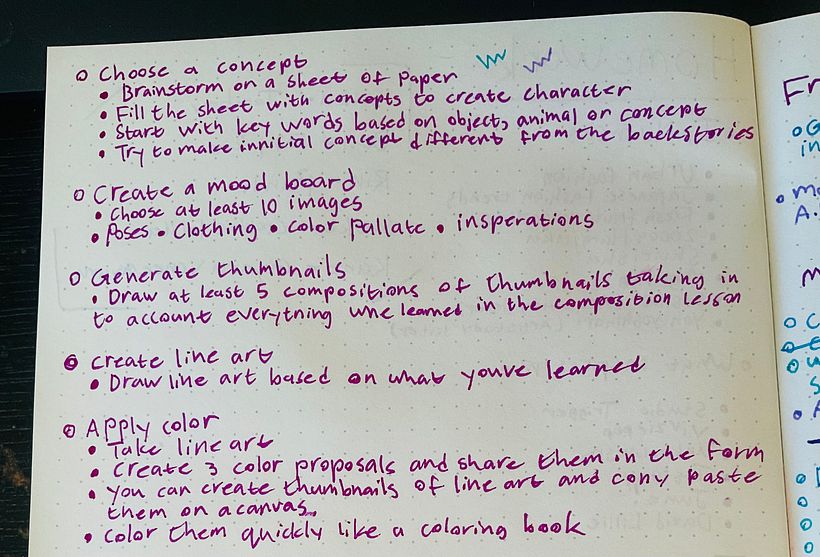 o Choose a concept
• Brainstorm on a sheet of paper
• Fill the sheet with concepts to create character
• Start with key words based on object, animal or concept
• Try to make innitial concept different from the backstories
o Create a mood board
• Choose at least 10 images
• Poses • Clothing • color pallate • insperations
o Generate thumbnails
• Draw at least 5 compositions of thumbnails taking in
to account everything we learned in the composition lesson
o create line art
• Draw line art based on what youve learned
o Apply color
• Take line art
• create 3 color proposals and share them in the form
• you can create thumbnails of line art and cony paste
them on a canvas.
• color them quickly like a coloring book
Fr
o G
in
• m
A.